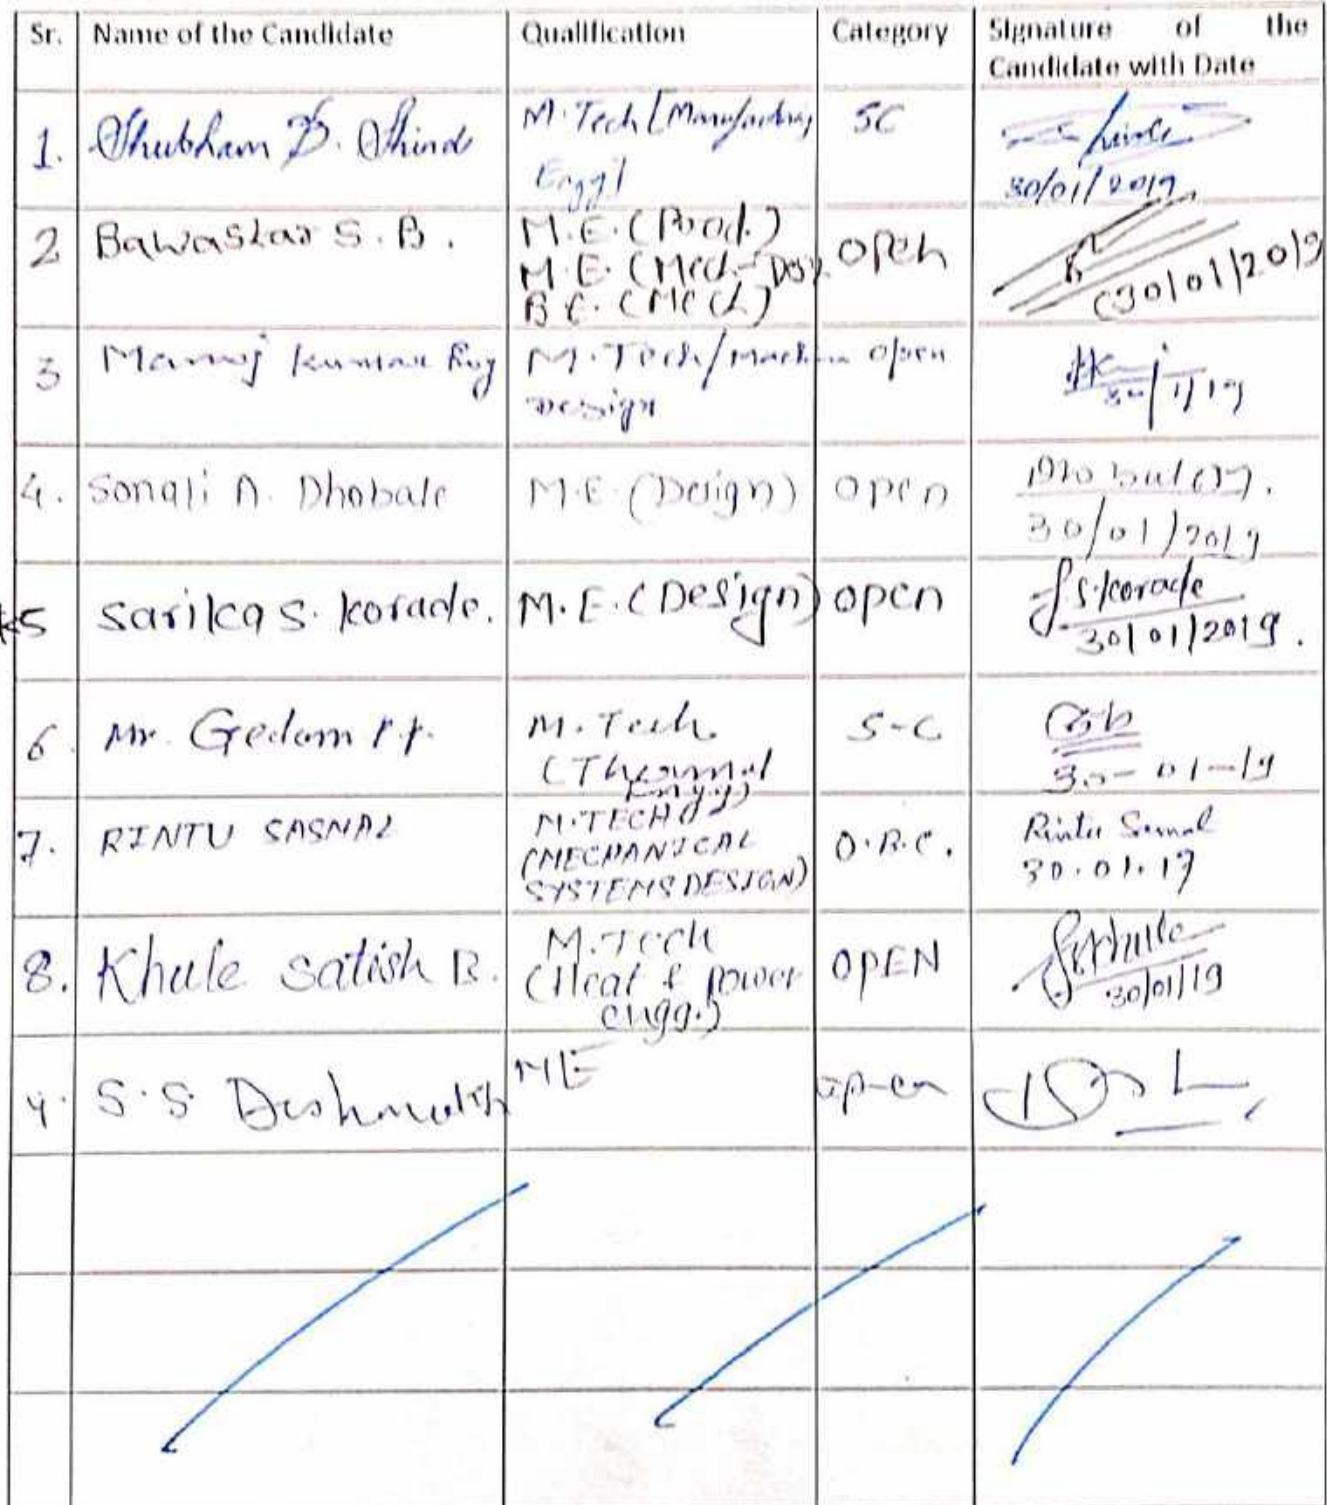 Sr. Name of the Candidate Qualification Category Signature of the
Candidate with Date
1. Shubham D. Shinde M.Tech [Manufacturing SC
Engg]
30/01/2019
2 Bawaskar S.B. M.E. (Prod.) open
M.E. (Mech-Des).
B.E. (Mech)
(30/01/2019
3 Manoj Kumar Roy M.Tech/Machine open
Design
30/1/19
4. Sonali A. Dhobale M.E (Design) open
30/01/2019
5 Sarika S. Korade. M.E. (Design) open S.Korade
30/01/2019.
6. Mr. Gedam P.P. M.Tech S-C
(Thermal
Engg)
30-01-19
7. RINTU SASMAL M.TECH O.B.C. Rintu Sasmal
(MECHANICAL 30.01.19
SYSTEMS DESIGN)
8. Khule Satish B. M.Tech OPEN
(Heat & Power
engg.)
30/01/19
9. S.S Deshmukh ME open